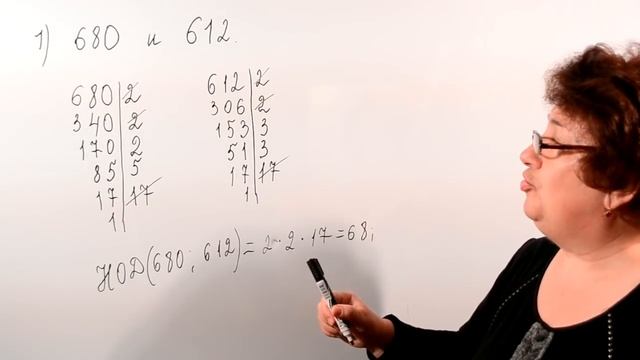 1) 680 и 612.
680 | 2
340 | 2
170 | 2
85 | 5
17 | 17
1 |
612 | 2
306 | 2
153 | 3
51 | 3
17 | 17
1 |
НОД(680; 612) = 2 · 2 · 17 = 68;